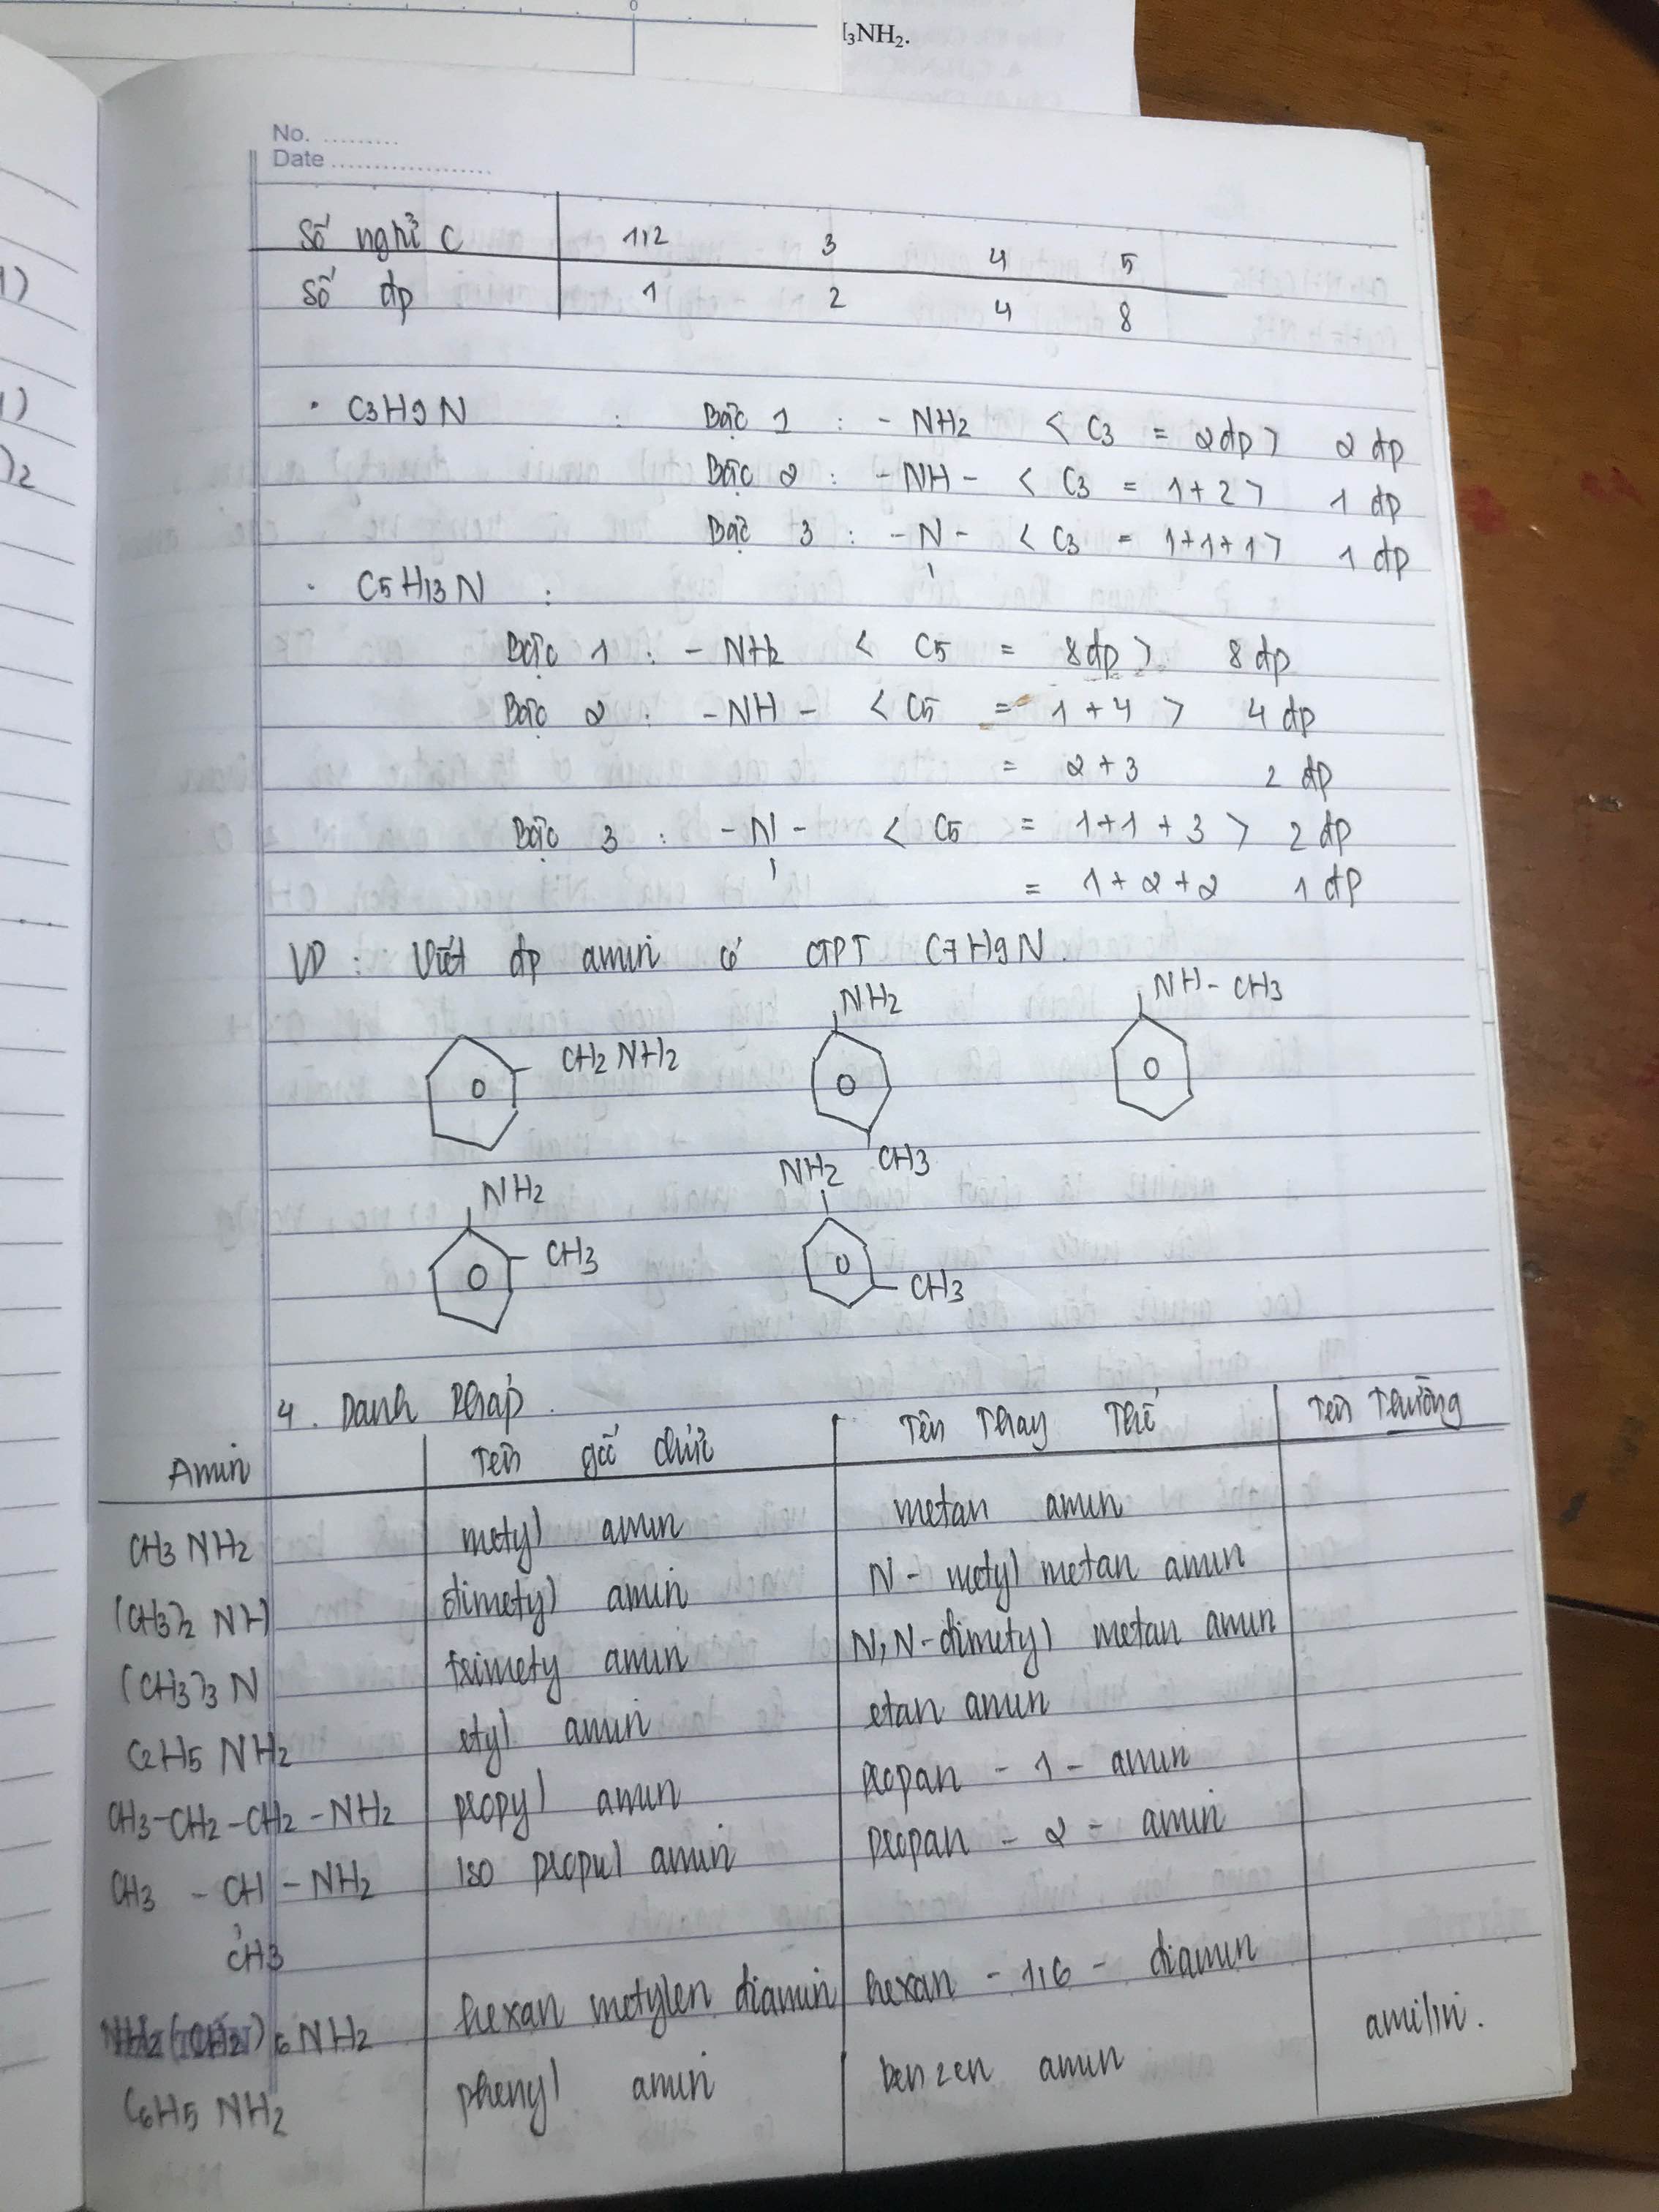 0
I₃NH₂.
No. ..........
Date ....................
Số nghử C 1,2 3 4 5
Số đp 1 2 4 8
• C3H9N : Bậc 1 : - NH2 < C3 = 2đp > 2 đp
Bậc 2 : - NH - < C3 = 1+2 > 1 đp
Bậc 3 : - N - < C3 = 1+1+1 > 1 đp
• C5H13N :
Bậc 1 : - NH2 < C5 = 8đp > 8 đp
Bậc 2 : - NH - < C5 = 1+4 > 4 đp
= 2+3 2 đp
Bậc 3 : - N - < C5 = 1+1+3 > 2 đp
= 1+2+2 1 đp
VD : Viết đp amin có CTPT C7H9N.
CH2NH2 NH2 NH-CH3
CH3
NH2 NH2
CH3 CH3
4. Danh Pháp.
Amin Tên gố chức Tên Thay Thế Tên Thường
CH3NH2 metyl amin metan amin
(CH3)2 NH đimetyl amin N - metyl metan amin
(CH3)3 N trimety amin N,N-đimetyl metan amin
C2H5 NH2 etyl amin etan amin
CH3-CH2-CH2-NH2 propyl amin propan - 1 - amin
CH3 - CH - NH2 iso propyl amin propan - 2 - amin
CH3
NH2(CH2)6NH2 hexan metylen điamin hexan - 1,6 - điamin
C6H5 NH2 phenyl amin benzen amin amilin.
1)
1)
)2